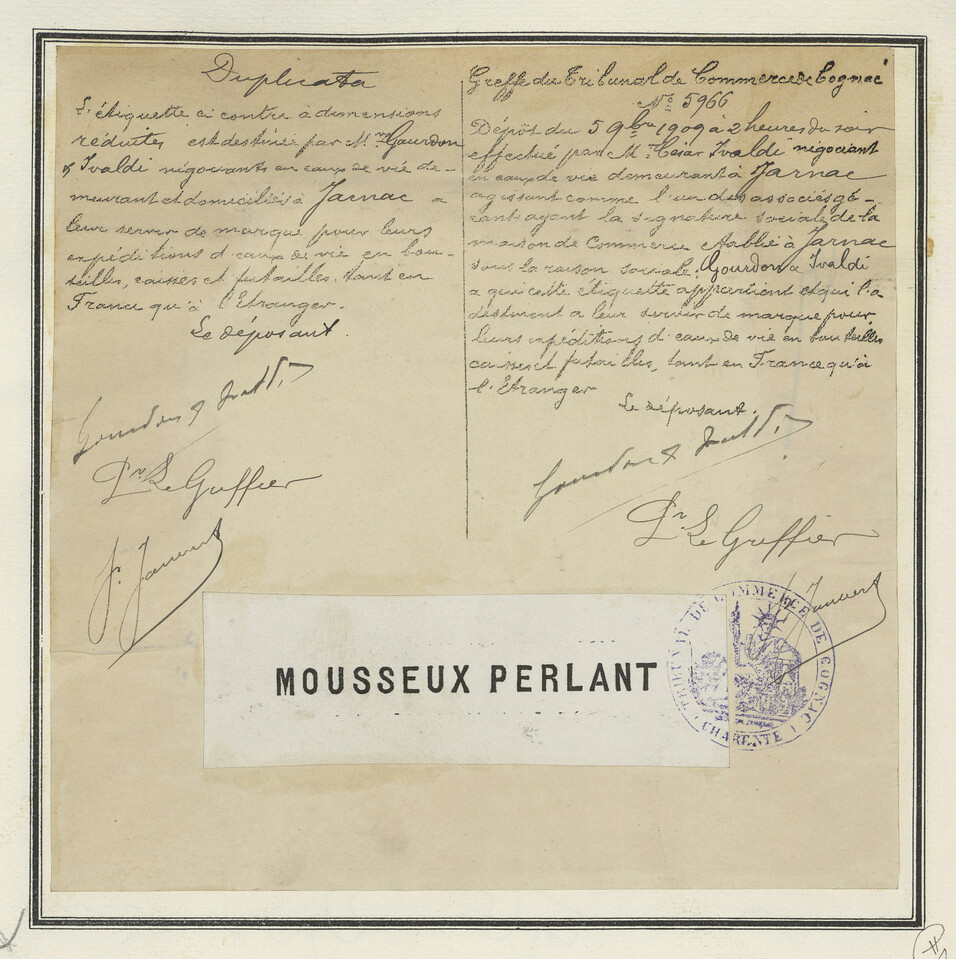 Duplicata
L'étiquette ci contre à dimensions
réduites est destinée par Mrs Gourdon
& Ivaldi négociants en eaux de vie de-
meurant et domiciliés à Jarnac a
leur servir de marque pour leurs
expéditions d'eaux de vie en bou-
teilles, caisses et futailles, tant en
France qu'à l'Etranger.
Le déposant.
Gourdon & Ivaldi
Pr Le Greffier
F. Januard
Greffe du Tribunal de Commerce de Cognac
No 5966
Dépôt du 5 9bre 1909 à 2 heures du soir
effectué par Mr César Ivaldi négociant
en eaux de vie demeurant à Jarnac
agissant comme l'un des associés gé-
rant ayant la signature sociale de la
maison de Commerce établie à Jarnac
sous la raison sociale: Gourdon & Ivaldi
a qui cette étiquette appartient et qui l'a
destinent a leur servir de marque pour
leurs expéditions d'eaux de vie en bouteilles
caisses et futailles, tant en France qu'à
l'Etranger
Le déposant.
Gourdon & Ivaldi
Pr Le Greffier
MOUSSEUX PERLANT
TRIBUNAL DE COMMERCE DE COGNAC
(CHARENTE)